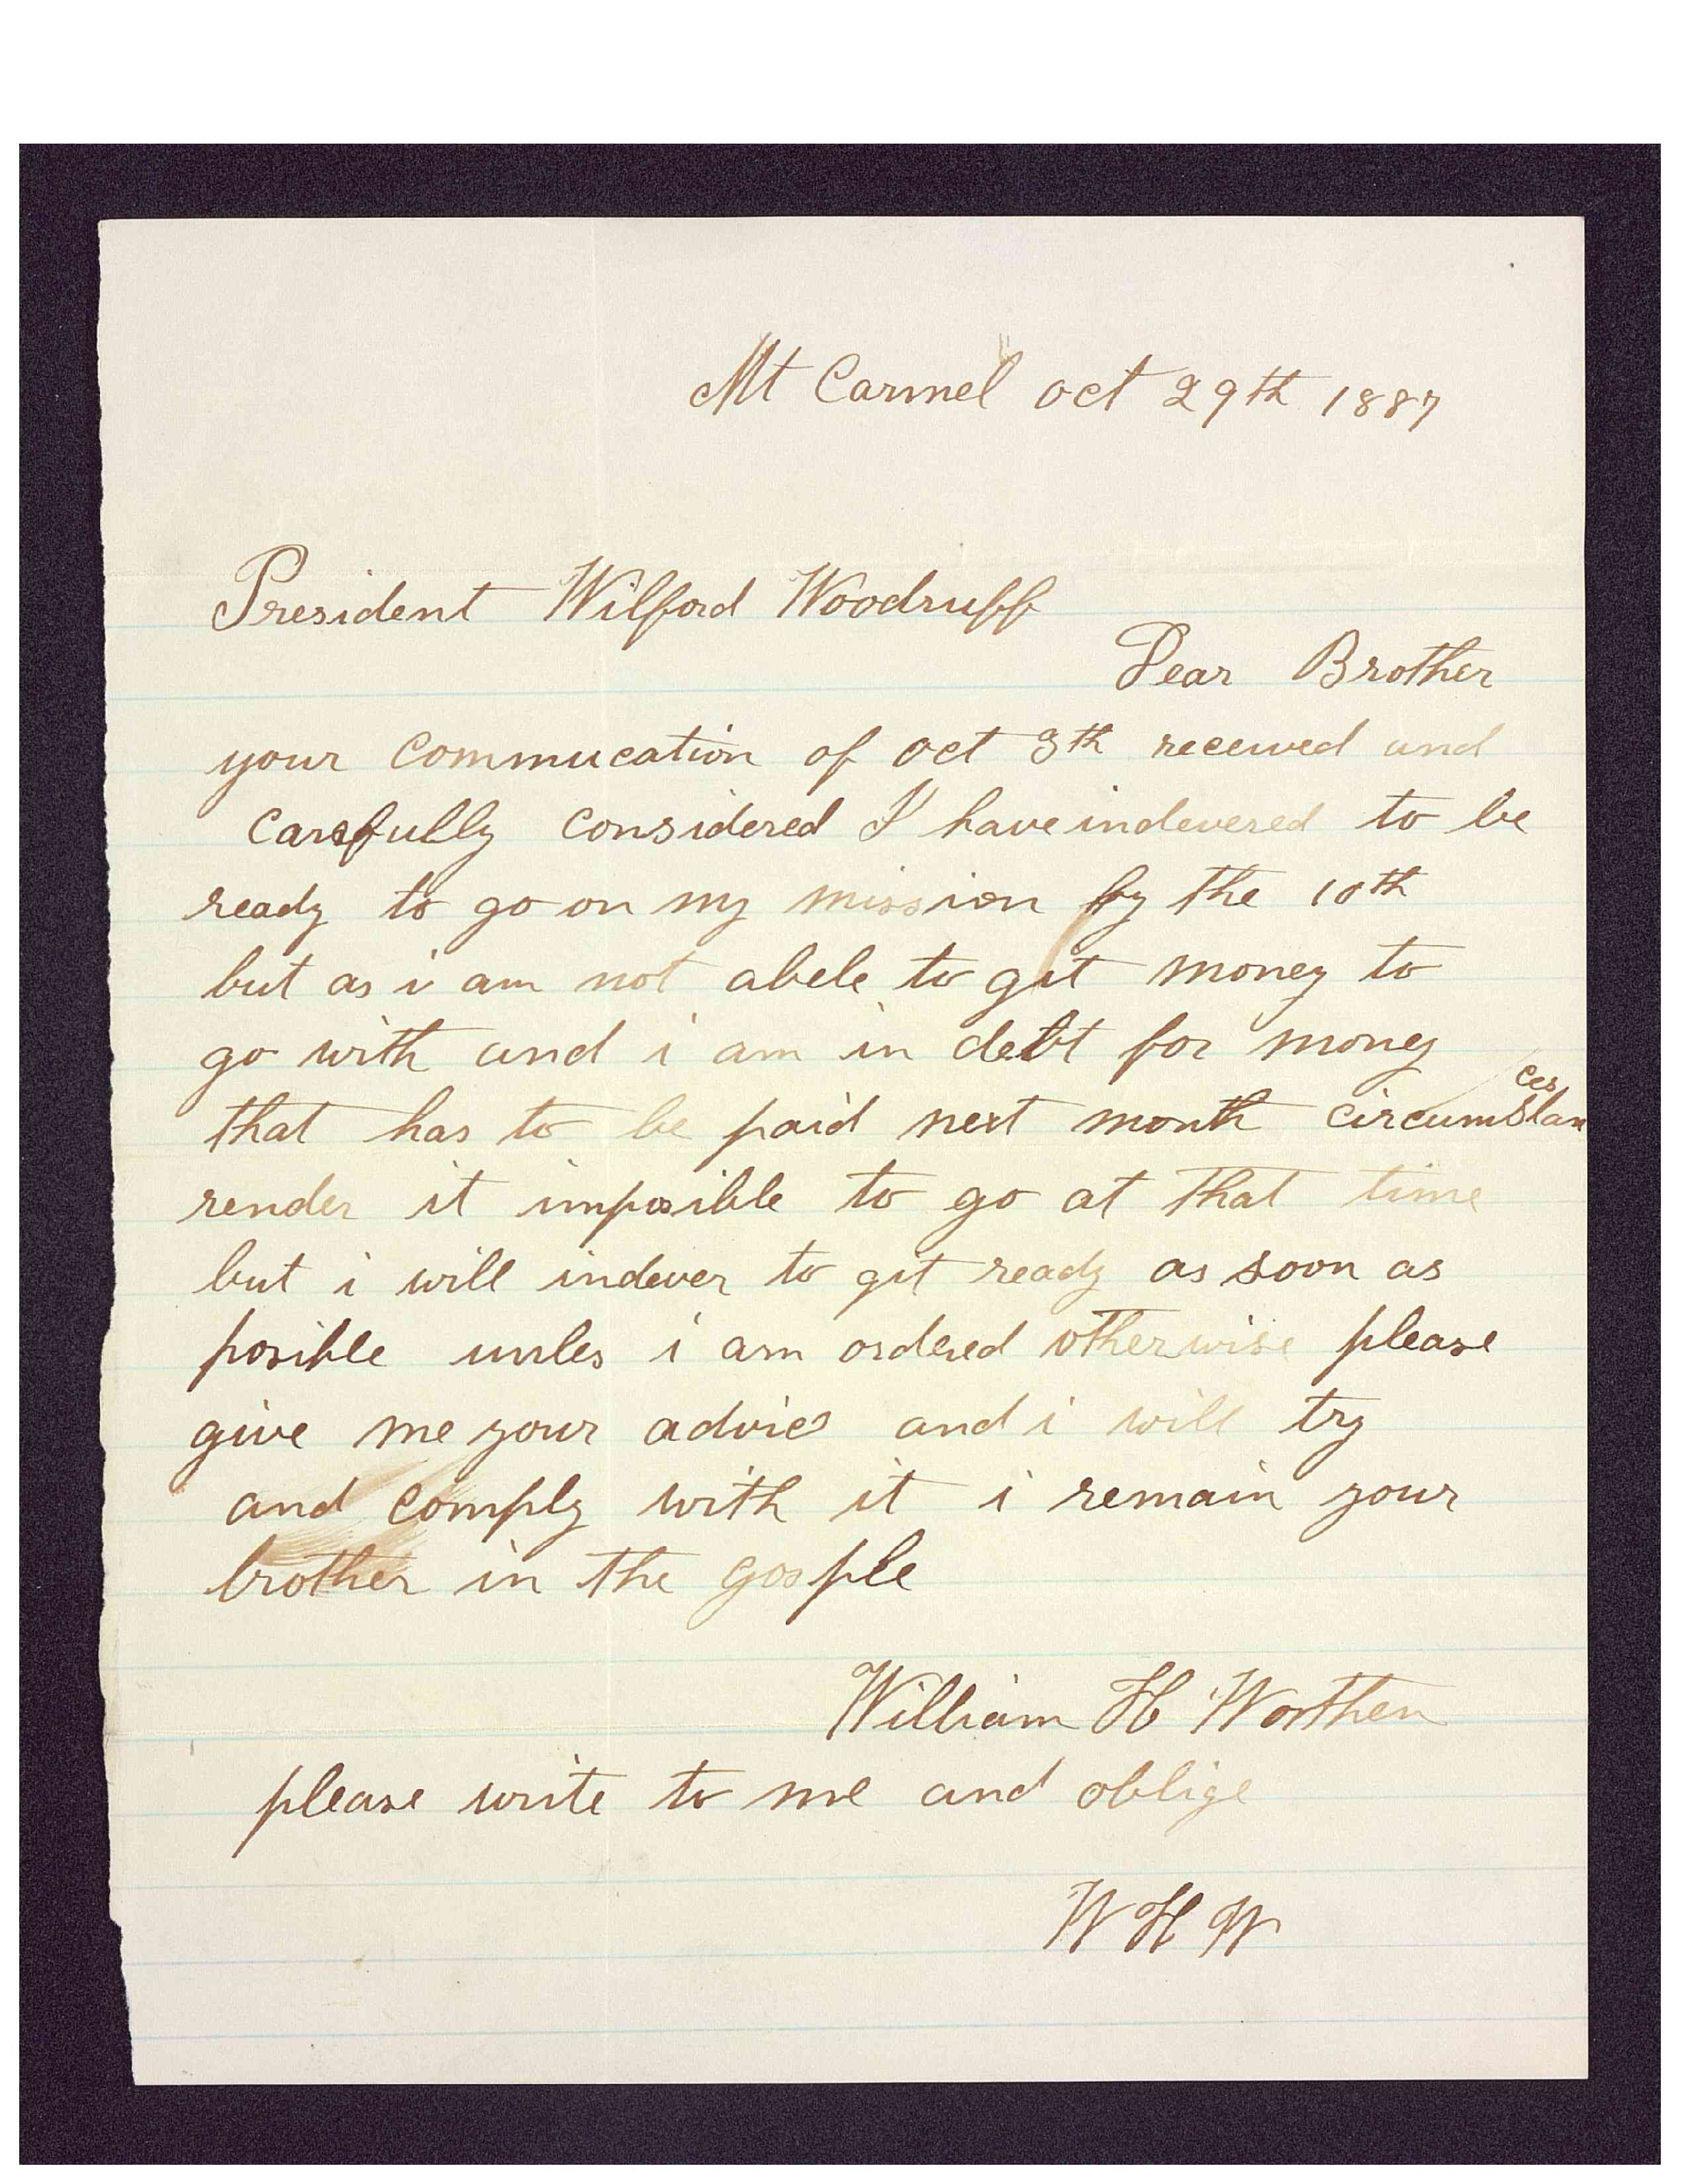 Mt Carmel oct 29th 1887
President Wilford Woodruff
Dear Brother
your commucation of oct 3th received and
carefully considered I have indevered to be
ready to go on my mission by the 10th
but as i am not abele to git money to
go with and i am in debt for money
that has to be paid next month circumstances
render it imposible to go at that time
but i will indever to git ready as soon as
posible unles i am ordered otherwise please
give me your advice and i will try
and comply with it i remain your
brother in the gosple
William H Worthen
please write to me and oblige
W H W